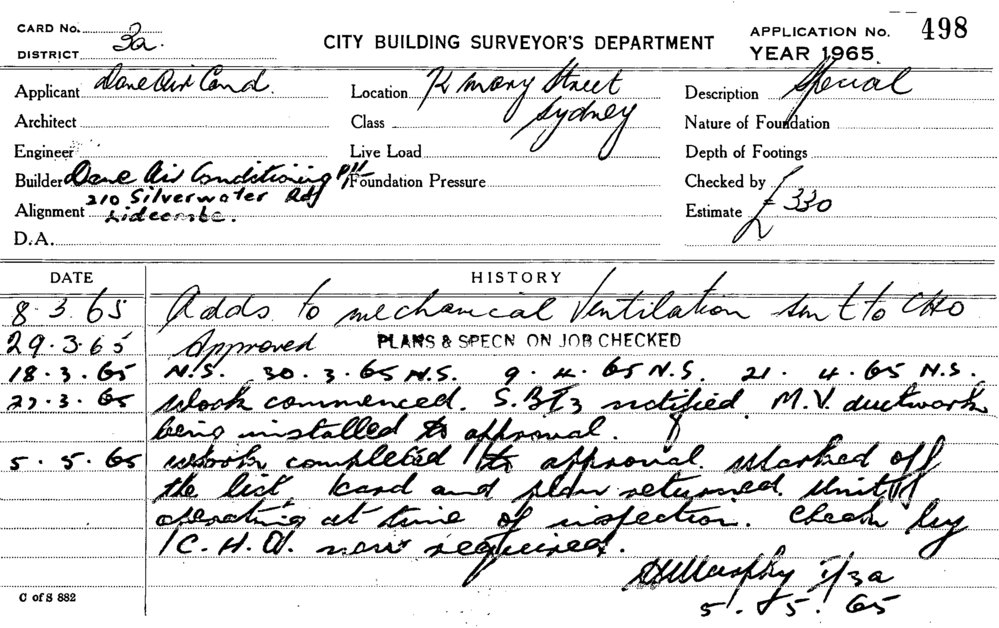 CARD No.
DISTRICT 3a.
CITY BUILDING SURVEYOR'S DEPARTMENT
APPLICATION No. 498
YEAR 1965.
Applicant Dane Air Cond.
Location Mary Street
Sydney
Description Special
Architect
Class
Nature of Foundation
Engineer
Live Load
Depth of Footings
Builder Dane Air Conditioning P/L
210 Silverwater Rd
Lidcombe.
Foundation Pressure
Checked by
Alignment
Estimate £ 330
D.A.
DATE HISTORY
8.3.65 Adds to mechanical Ventilation sent to CHO
29.3.65 Approved PLANS & SPECN ON JOB CHECKED
18.3.65 N.S. 30.3.65 N.S. 9.4.65 N.S. 21.4.65 N.S.
27.3.65 Work commenced. notified. M.V. ductwork
being installed to approval.
5.5.65 Work completed to approval. Marked off
the list, Card and plan returned. Unit
operating at time of inspection. Check by
C.H.O. now required.
Murphy 3a
5.5.65
C of S 882